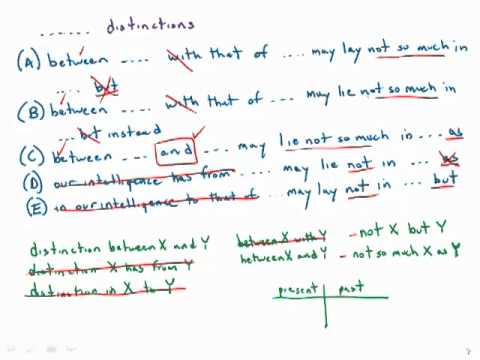 ...... distinctions
(A) between .... with that of .... may lay not so much in
.... but
(B) between .... with that of .... may lie not so much in
... but instead
(C) between .... and .... may lie not so much in ... as
(D) our intelligence has from ..... may lie not in ... as
(E) in our intelligence to that of ... may lay not in ... but
distinction between X and Y
distinction X has from Y
distinction in X to Y
between X with Y
between X and Y
- not X but Y
- not so much X as Y
present past
7